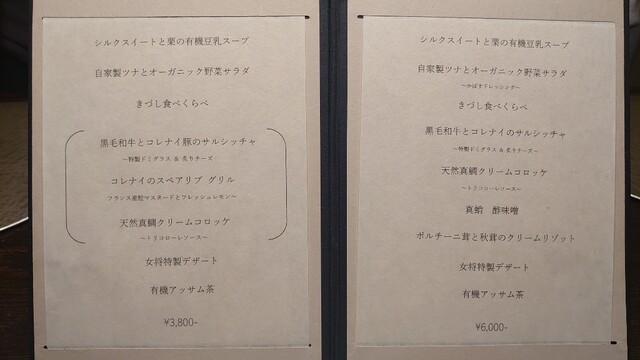 シルクスイートと栗の有機豆乳スープ
自家製ツナとオーガニック野菜サラダ
きづし食べくらべ
黒毛和牛とコレナイ豚のサルシッチャ
～特製ドミグラス & 炙りチーズ
コレナイのスペアリブ グリル
フランス産粒マスタードとフレッシュレモン～
天然真鯛クリームコロッケ
～トリコローレソース～
女将特製デザート
有機アッサム茶
¥3,800-
シルクスイートと栗の有機豆乳スープ
自家製ツナとオーガニック野菜サラダ
～かぼすドレッシング～
きづし食べくらべ
黒毛和牛とコレナイのサルシッチャ
～特製ドミグラス & 炙りチーズ～
天然真鯛クリームコロッケ
～トリコローレソース～
真蛸 酢味噌
ポルチーニ茸と秋茸のクリームリゾット
女将特製デザート
有機アッサム茶
¥6,000-